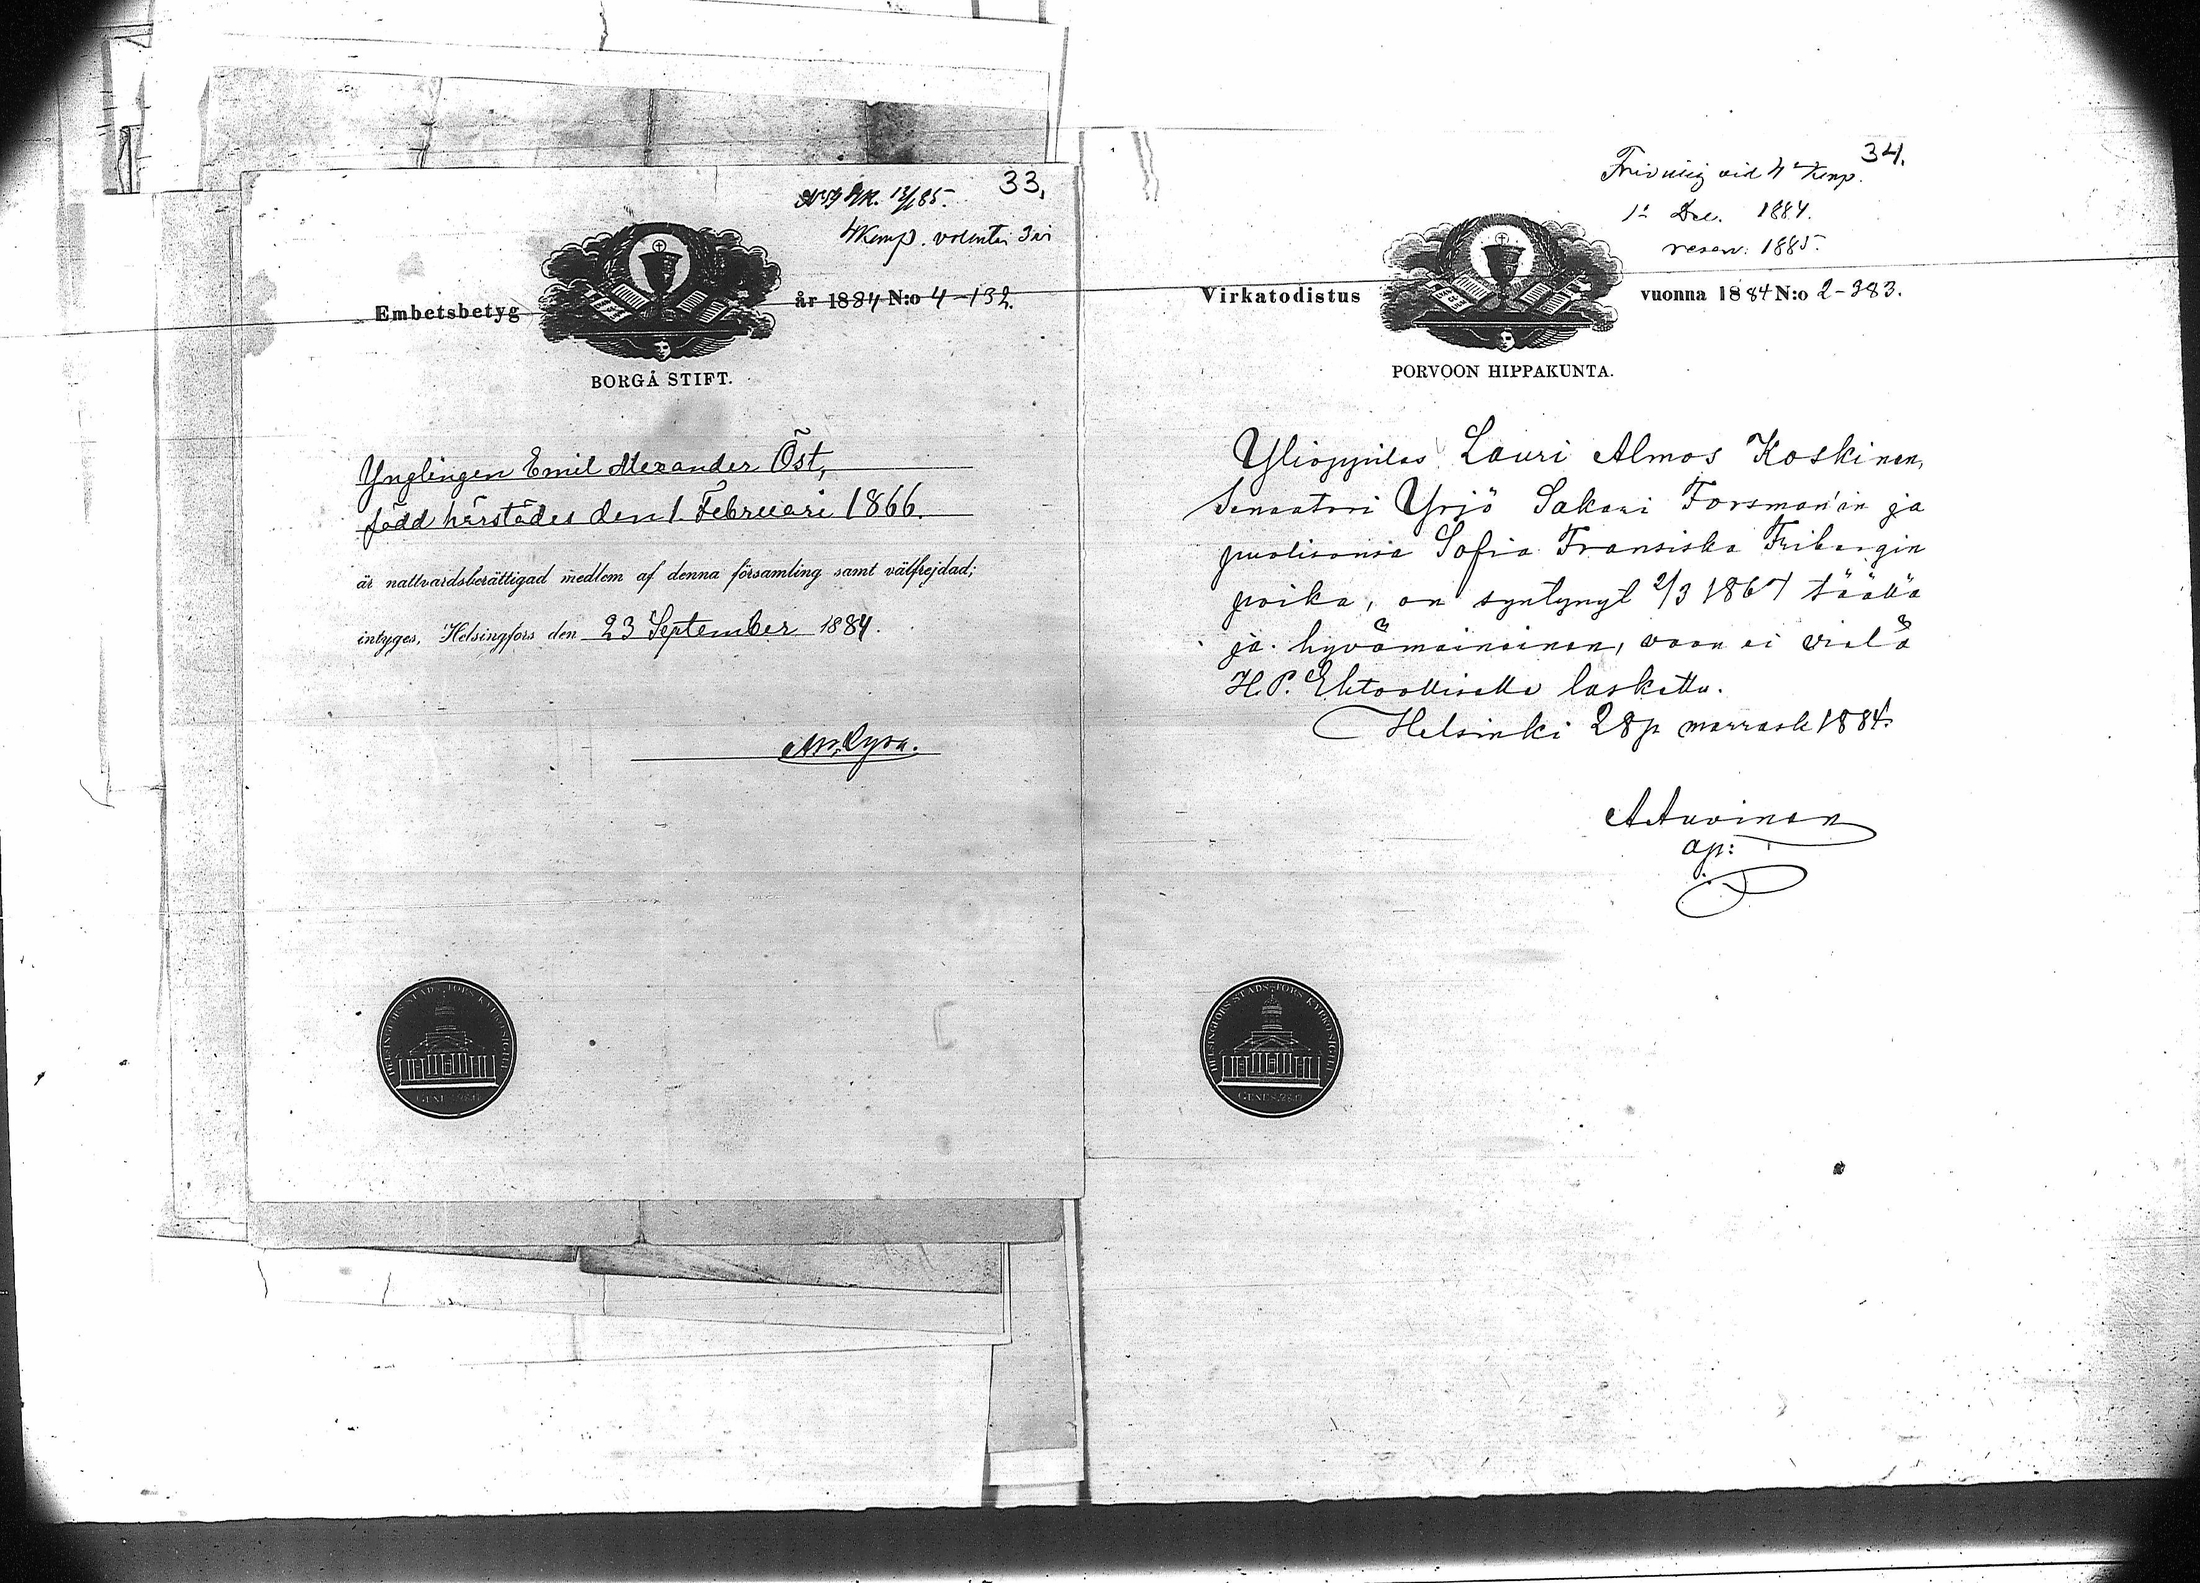 33.
4 Komp. volontär 3 år
Embetsbetyg år 1884 N:o 4-132.
BORGÅ STIFT.
Ynglingen Emil Alexander Öst,
född härstädes den 1. Februari 1866.
är nattvardsberättigad medlem af denna församling samt välfrejdad;
intyges, Helsingfors den 23 September 1884.
HELSINGFORS STADS FÖRS. KYRKOSIGILL
GENES. 28.17
34.
Frivillig vid 4 Komp.
1 Dec. 1884.
reserv. 1885.
Virkatodistus vuonna 1884 N:o 2-383.
PORVOON HIPPAKUNTA.
Ylioppilas Lauri Almos Koskinen,
Senaatori Yrjö Sakari Forsman'in ja
puolisonsa Sofia Fransiska Fribergin
poika, on syntynyt 2/3 1867 täällä
ja hyvämaineinen, vaan ei vielä
H. P. Ehtoolliselle laskettu.
Helsinki 28 p. marrask 1884.
A Auvinen
ap:
HELSINGFORS STADS FÖRS. KYRKOSIGILL
GENES. 28.17